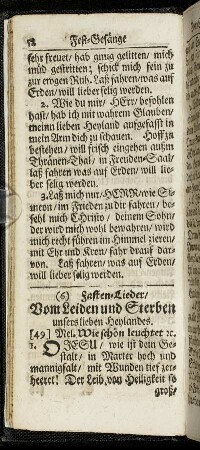 52 Fest-Gesänge
sehr freuet/ hab gnug gelitten/ mich
müd gestritten; schick mich fein zu
zur ewgen Ruh. Laß fahren/ was auf
Erden/ will lieber selig werden.
2. Wie du mir/ HErr/ befohlen
hast/ hab ich mit wahrem Glauben/
meinn lieben Heyland aufgefasst in
mein Arm dich zu schauen. Hoff zu
bestehen/ will frisch eingehen außm
Thränen-Thal/ in Freuden-Saal/
laß fahren was auf Erden/ will lie-
ber selig werden.
3. Laß mich nur/ HERR/ wie Si-
meon/ im Frieden zu dir fahren/ be-
fehl mich CHristo/ deinem Sohn/
der wird mich wohl bewahren/ wird
mich recht führen im Himmel zieren/
mit Ehr und Kron/ fahr drauf dar-
von. Laß fahren/ was auf Erden/
will lieber selig werden.
(6) Fasten-Lieder/
Vom Leiden und Sterben
unsers lieben Heylandes.
[49] Mel. Wie schön leuchtet ꝛc.
1. O JESU/ wie ist dein Ge-
stalt/ in Marter hoch und
mannigfalt/ mit Wunden tief zer-
heeret! Der Leib von Heiligkeit so
groß/